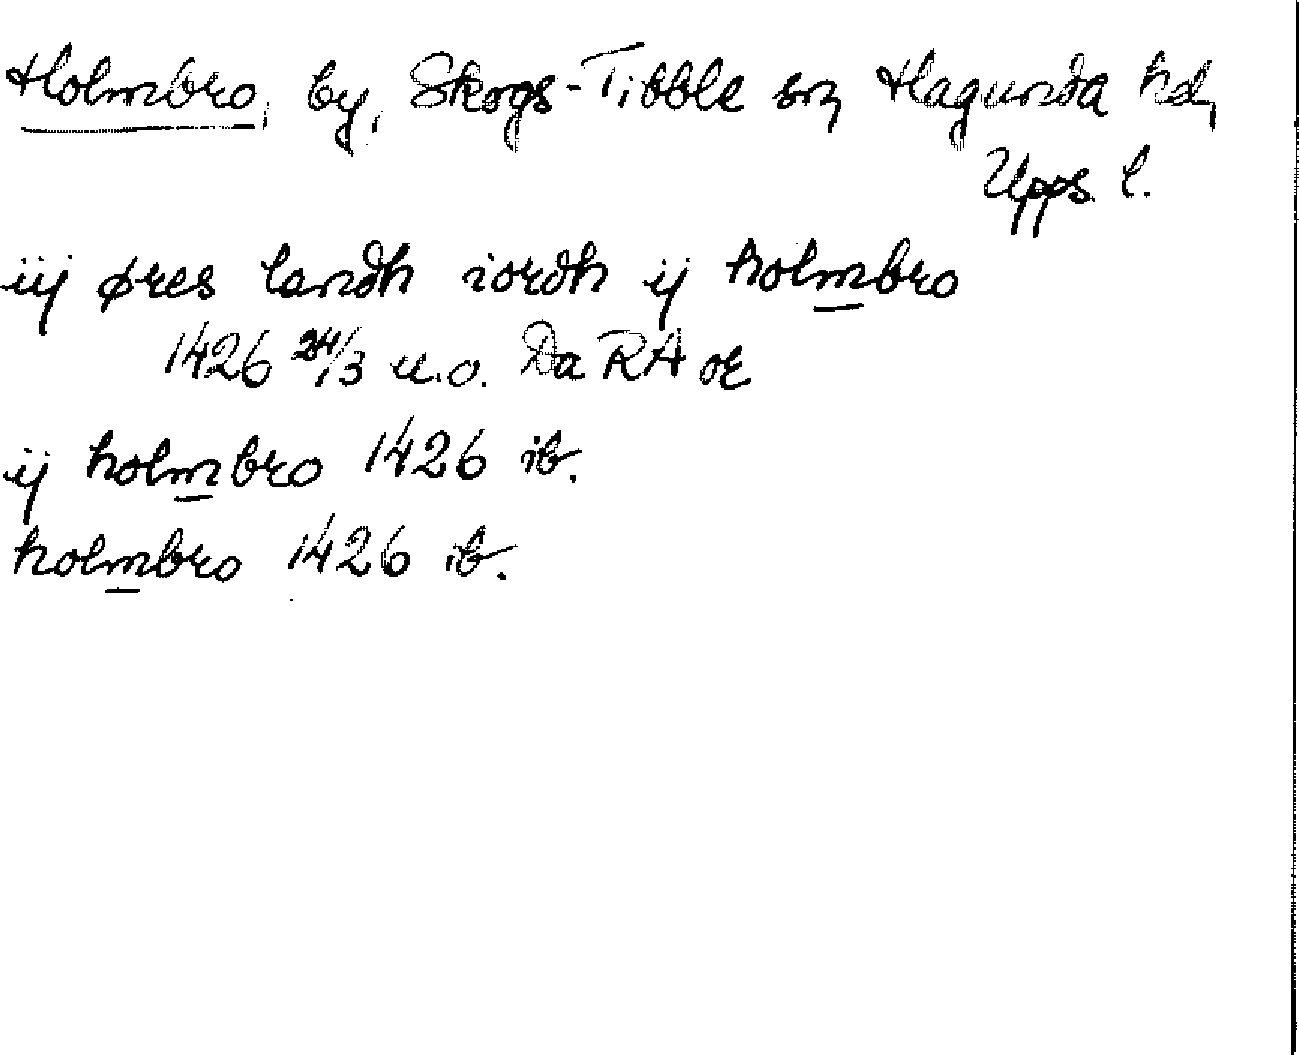 Holmbro, by, Skogs-Tibble sn, Hagunda hd,
Upps. l.
iij øres landh iordh ij holmbro
1426 24/3 u.o. Da RA or
ij holmbro 1426 ib.
holmbro 1426 ib.